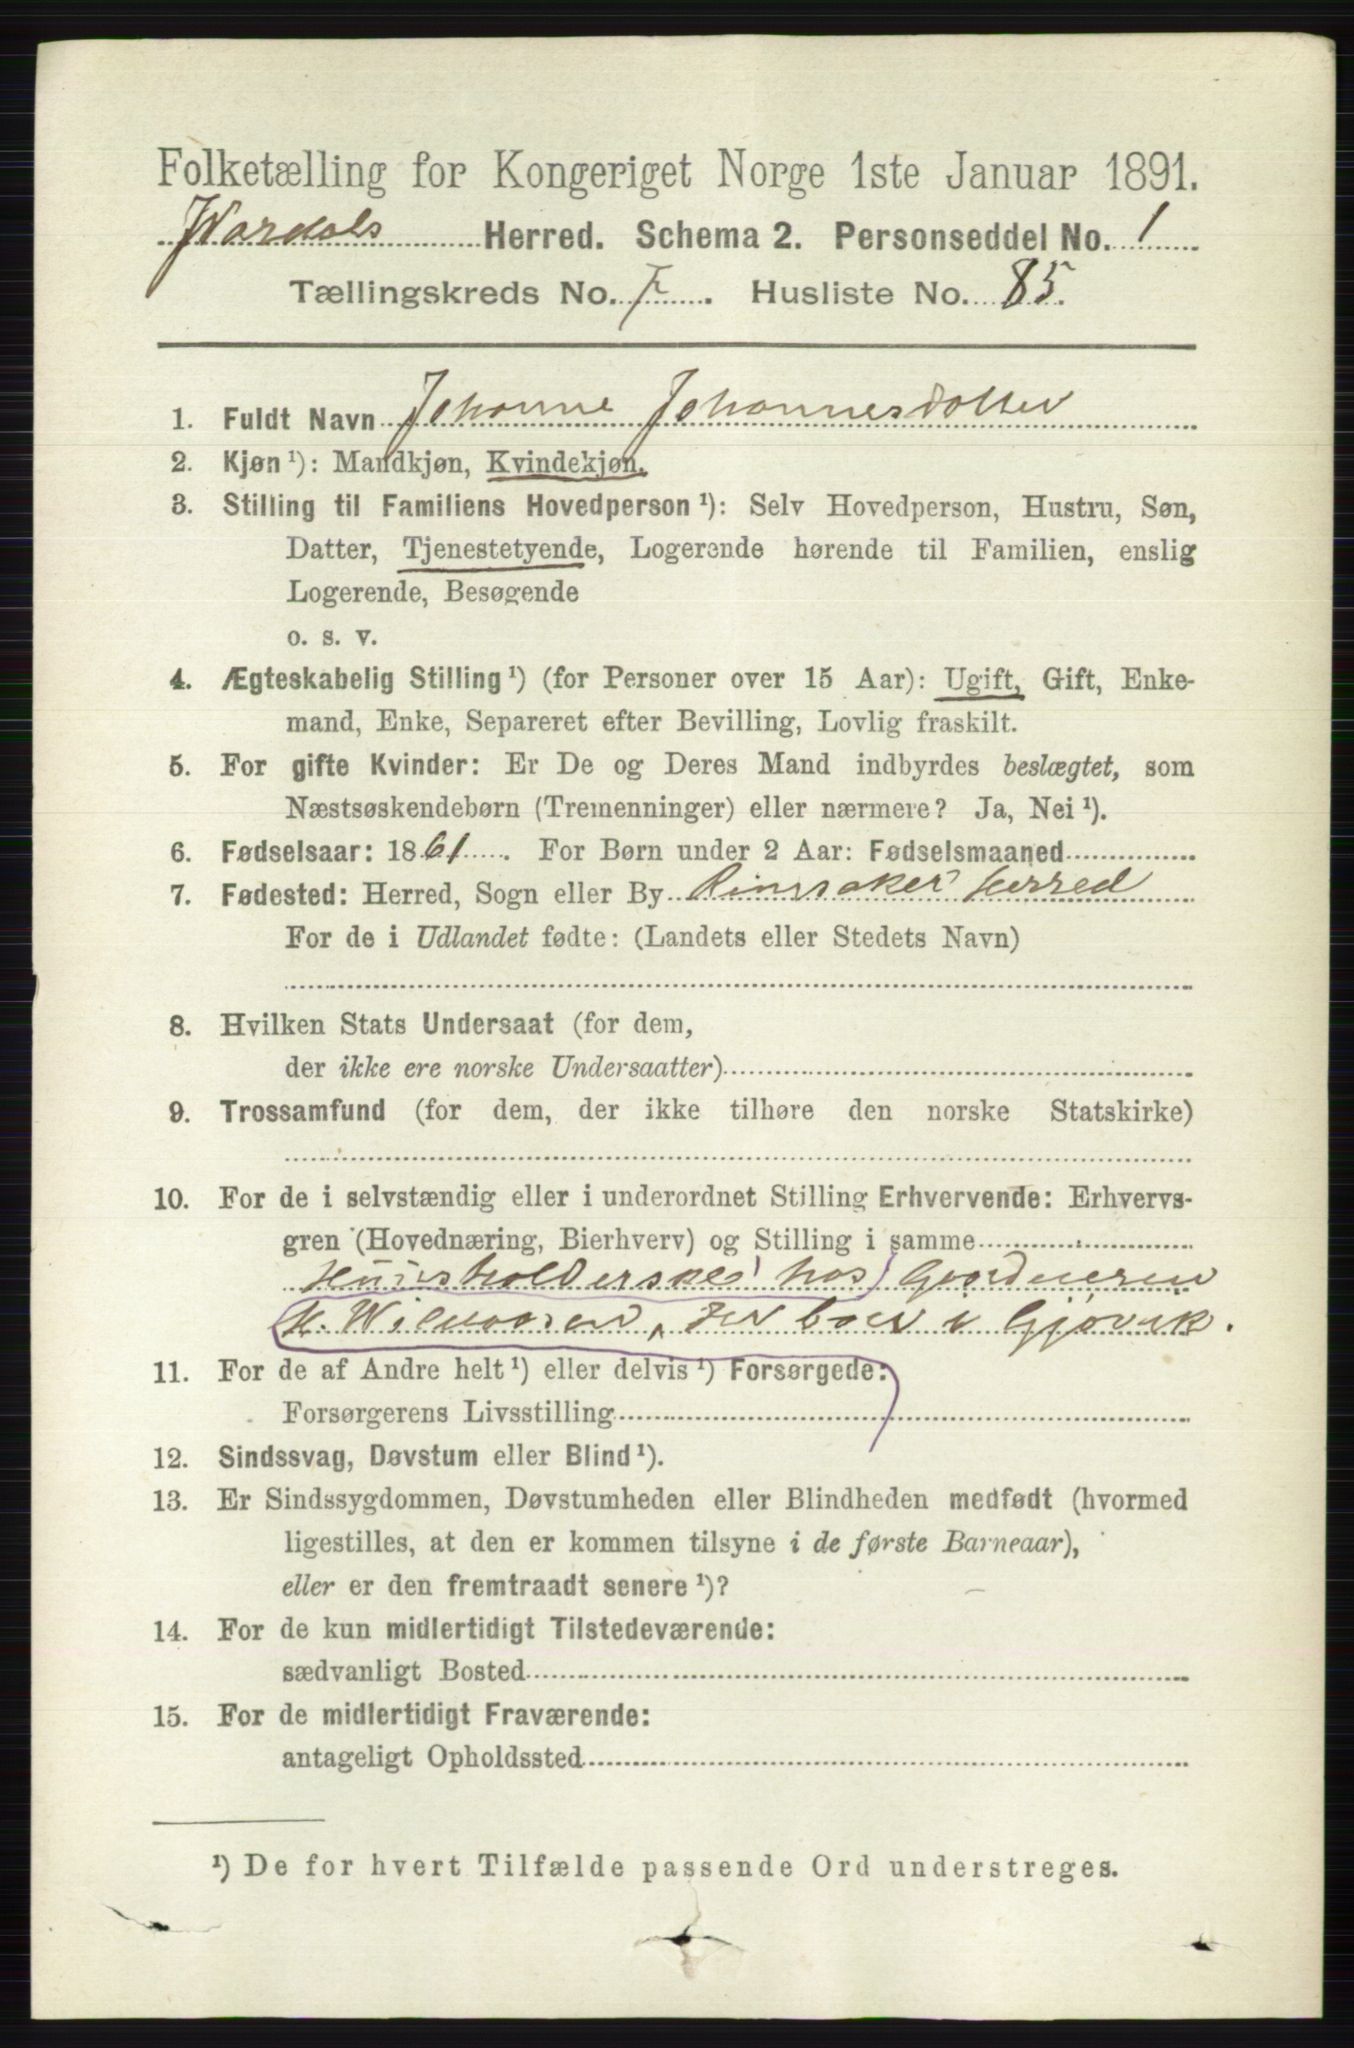 Folketælling for Kongeriget Norge 1ste Januar 1891.
Wardals Herred. Schema 2. Personseddel No. 1
Tællingskreds No. 7. Husliste No. 85.
1. Fuldt Navn Johanne Johannesdatter
2. Kjøn ¹): Mandkjøn, Kvindekjøn.
3. Stilling til Familiens Hovedperson ¹): Selv Hovedperson, Hustru, Søn,
Datter, Tjenestetyende, Logerende hørende til Familien, enslig
Logerende, Besøgende
o. s. v.
4. Ægteskabelig Stilling ¹) (for Personer over 15 Aar): Ugift, Gift, Enke-
mand, Enke, Separeret efter Bevilling, Lovlig fraskilt.
5. For gifte Kvinder: Er De og Deres Mand indbyrdes beslægtet, som
Næstsøskendebørn (Tremenninger) eller nærmere? Ja, Nei ¹).
6. Fødselsaar: 1861. For Børn under 2 Aar: Fødselsmaaned
7. Fødested: Herred, Sogn eller By Ringsaker Herred
For de i Udlandet fødte: (Landets eller Stedets Navn)
8. Hvilken Stats Undersaat (for dem,
der ikke ere norske Undersaatter)
9. Trossamfund (for dem, der ikke tilhøre den norske Statskirke)
10. For de i selvstændig eller i underordnet Stilling Erhvervende: Erhvervs-
gren (Hovednæring, Bierhverv) og Stilling i samme
Huusholderske hos Gaardeieren
, der boer i Gjøvik.
11. For de af Andre helt ¹) eller delvis ¹) Forsørgede:
Forsørgerens Livsstilling
12. Sindssvag, Døvstum eller Blind ¹).
13. Er Sindssygdommen, Døvstumheden eller Blindheden medfødt (hvormed
ligestilles, at den er kommen tilsyne i de første Barneaar),
eller er den fremtraadt senere ¹)?
14. For de kun midlertidigt Tilstedeværende:
sædvanligt Bosted
15. For de midlertidigt Fraværende:
antageligt Opholdssted
¹) De for hvert Tilfælde passende Ord understreges.